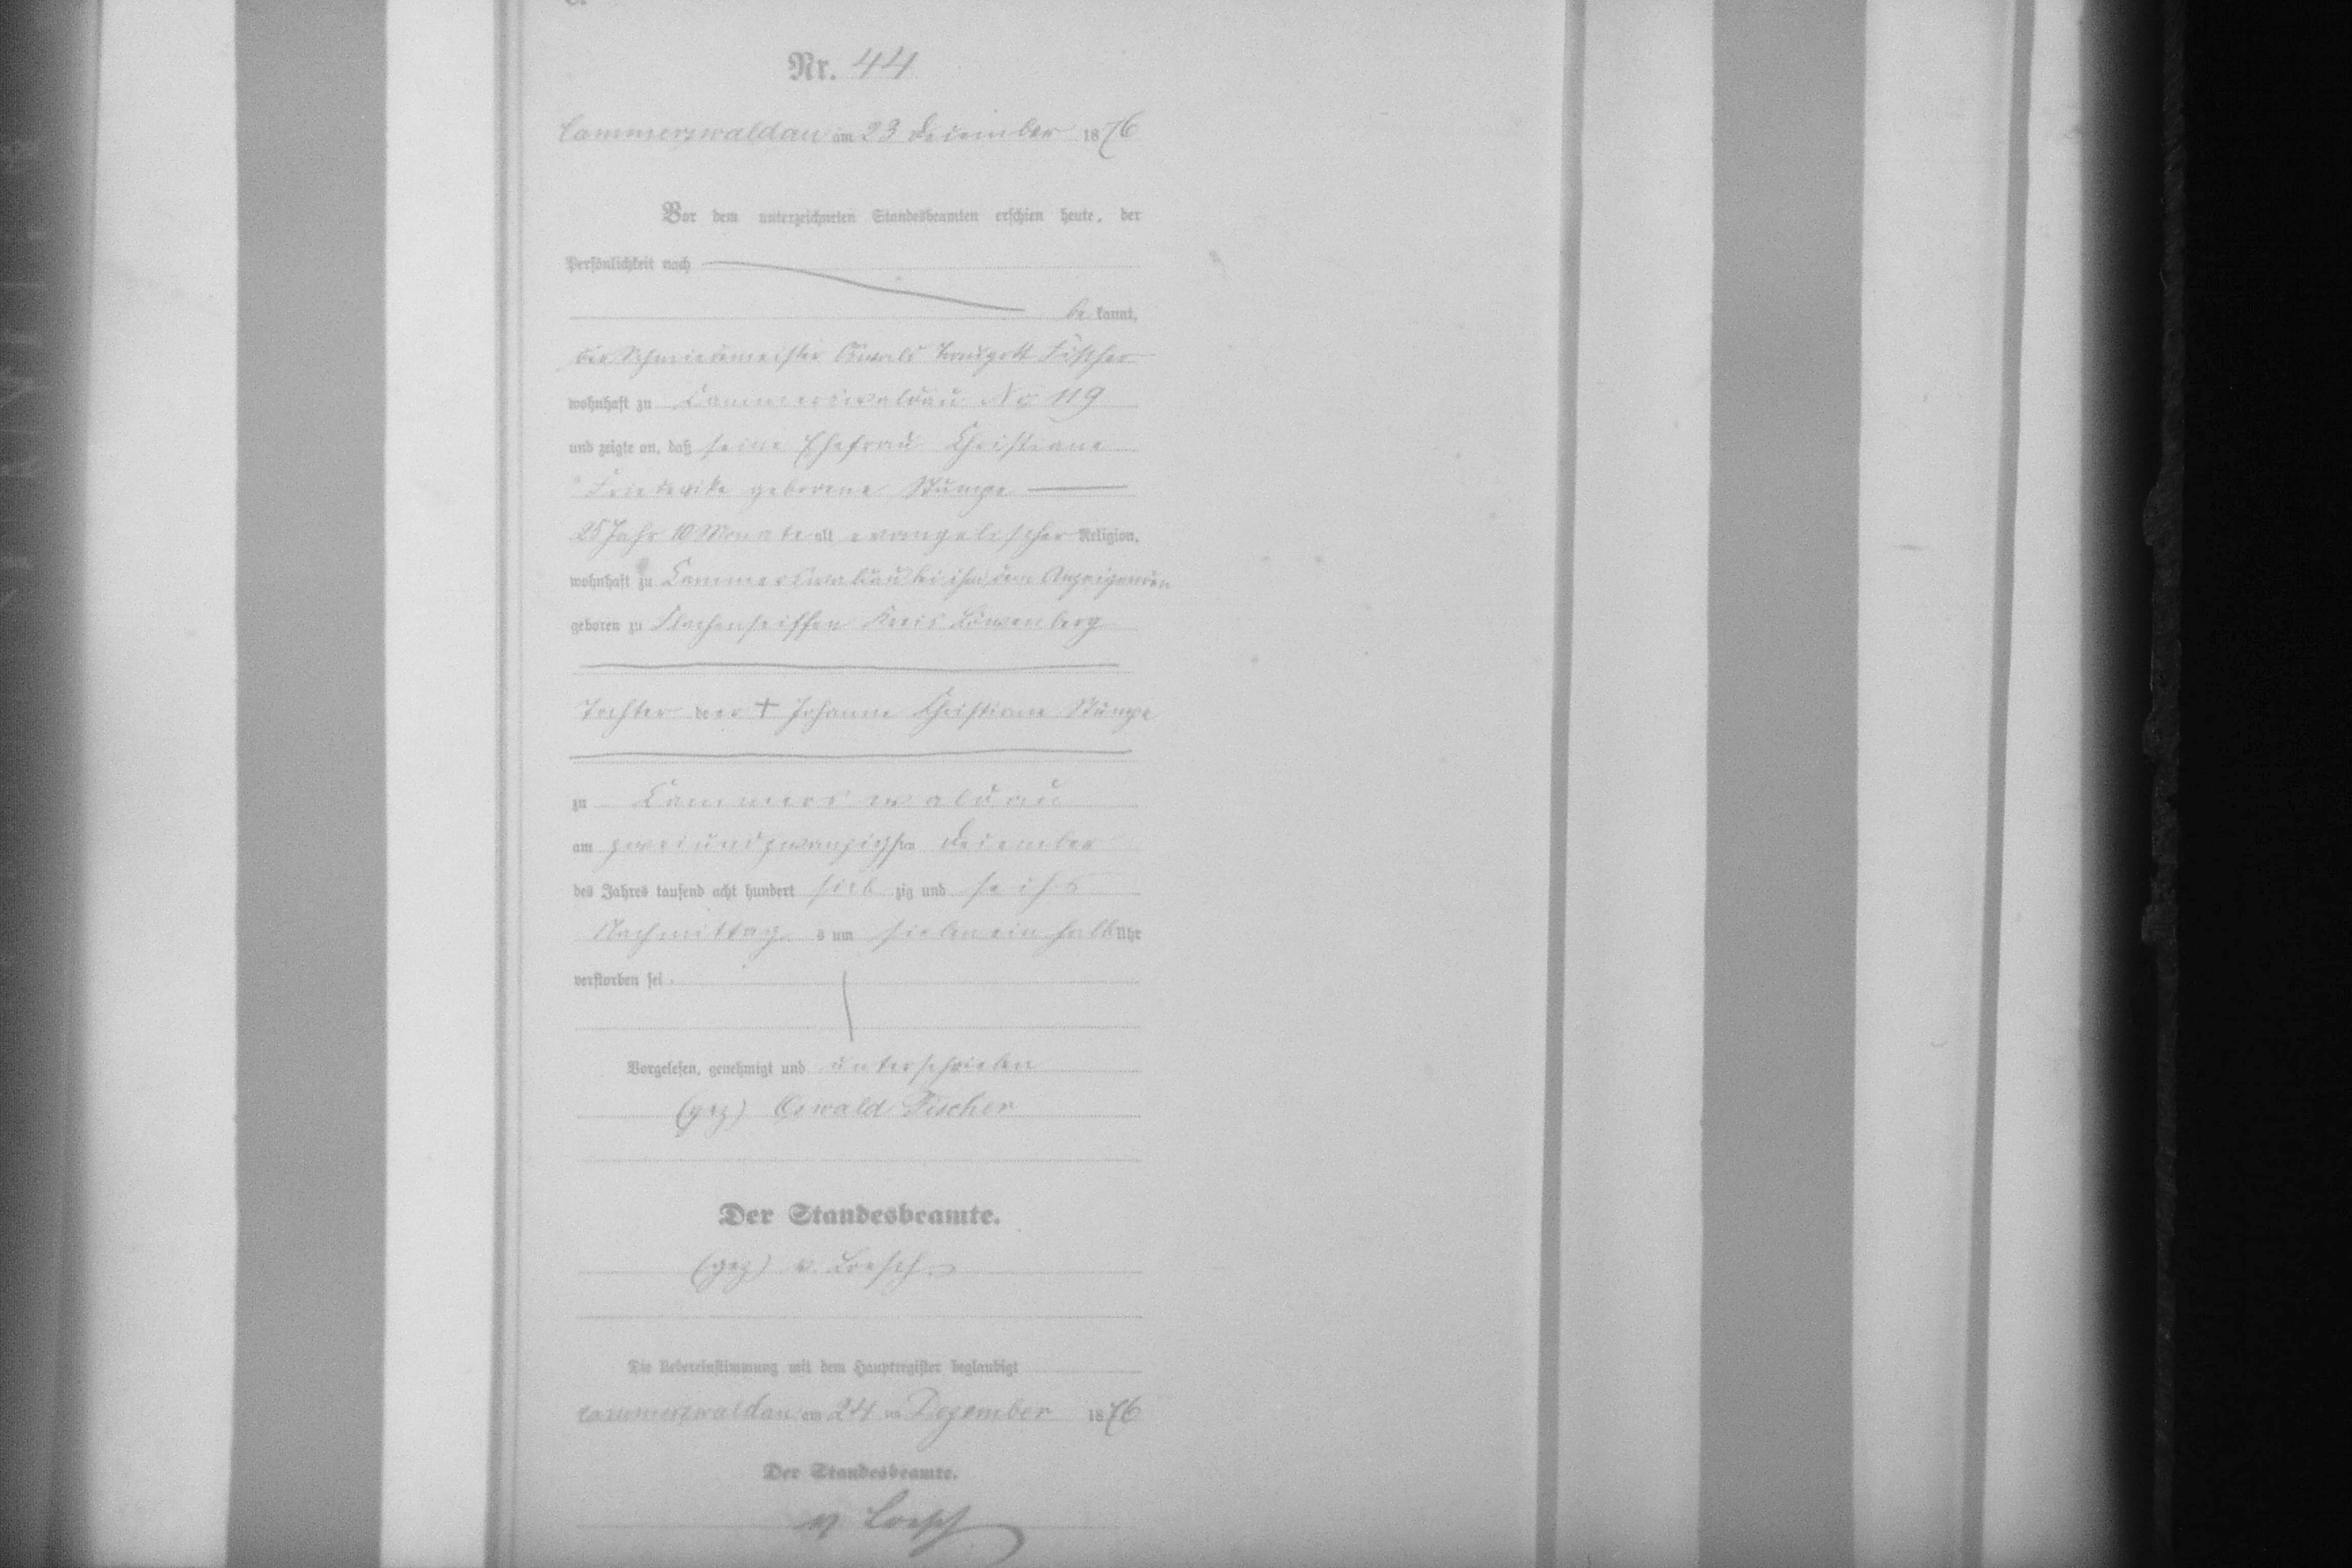 C.
Nr. 44
Cammerswaldau am 23 December 1876
Vor dem unterzeichneten Standesbeamten erschien heute, der
Persönlichkeit nach
be kannt,
der Schmiedemeister Oswald Traugott Fischer
wohnhaft zu Cammerswaldau No 119
und zeigte an, daß seine Ehefrau Christiane
Friederike geborene Stumpe
25 Jahr 10 Monate alt evangelischer Religion,
wohnhaft zu Cammerswaldau bei ihm dem Anzeigenden
geboren zu Flachenseiffen Kreis Löwenberg
Tochter der † Johanne Christiane Stumpe
zu Cammerswaldau
am zweiundzwanzigsten December
des Jahres tausend acht hundert sieb zig und sechs
Nachmittag s um sieben ein halb Uhr
verstorben sei.
Vorgelesen, genehmigt und unterschrieben
(gez) Oswald Fischer
Der Standesbeamte.
(gez) v. Loesch
Die Uebereinstimmung mit dem Hauptregister beglaubigt
Cammerswaldau am 24 ten Dezember 1876
Der Standesbeamte.
v Loesch